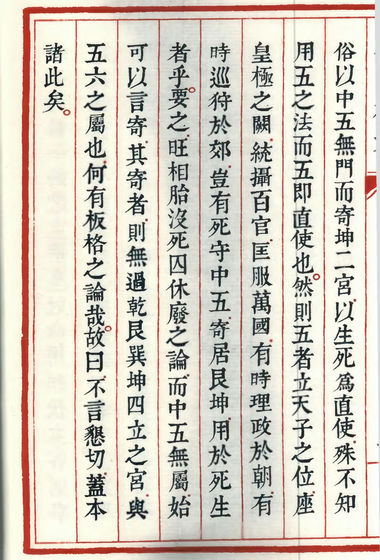 俗以中五無門而寄坤二宮以生死為直使殊不知
用五之法而五即直使也然則五者立天子之位座
皇極之闕統攝百官匡服萬國有時理政於朝有
時巡狩於郊豈有死守中五寄居艮坤用於死生
者乎要之旺相胎沒死囚休廢之論而中五無屬始
可以言寄其寄者則無過乾艮巽坤四立之宮與
五六之屬也何有板格之論哉故曰不言懇切蓋本
諸此矣